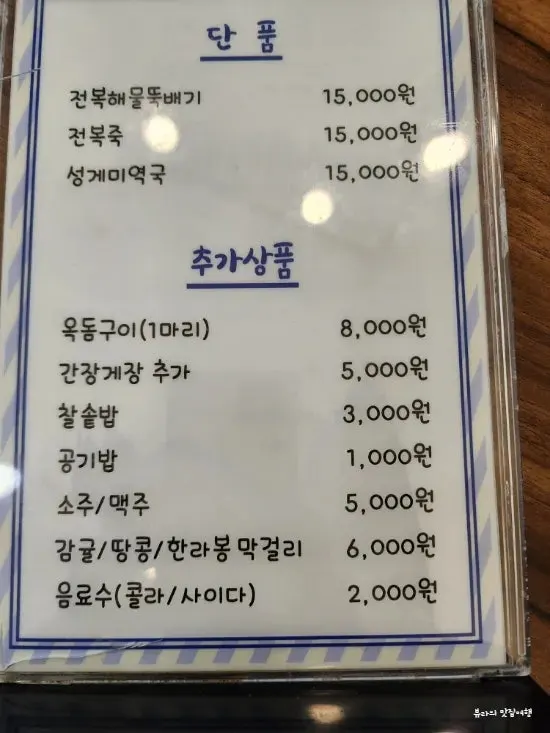 단 품
전복해물뚝배기 15,000원
전복죽 15,000원
성게미역국 15,000원
추가상품
옥돔구이(1마리) 8,000원
간장게장 추가 5,000원
찰솥밥 3,000원
공기밥 1,000원
소주/맥주 5,000원
감귤/땅콩/한라봉 막걸리 6,000원
음료수(콜라/사이다) 2,000원
뷰라의 맛집여행